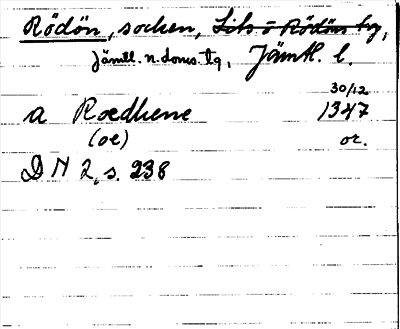 Rödön, socken, Lits o Rödöns tg,
Jämtl. n. doms. tg, Jämtl. l.
30/12
a Roedhene 1347
(oe) or.
D N 2, s. 238